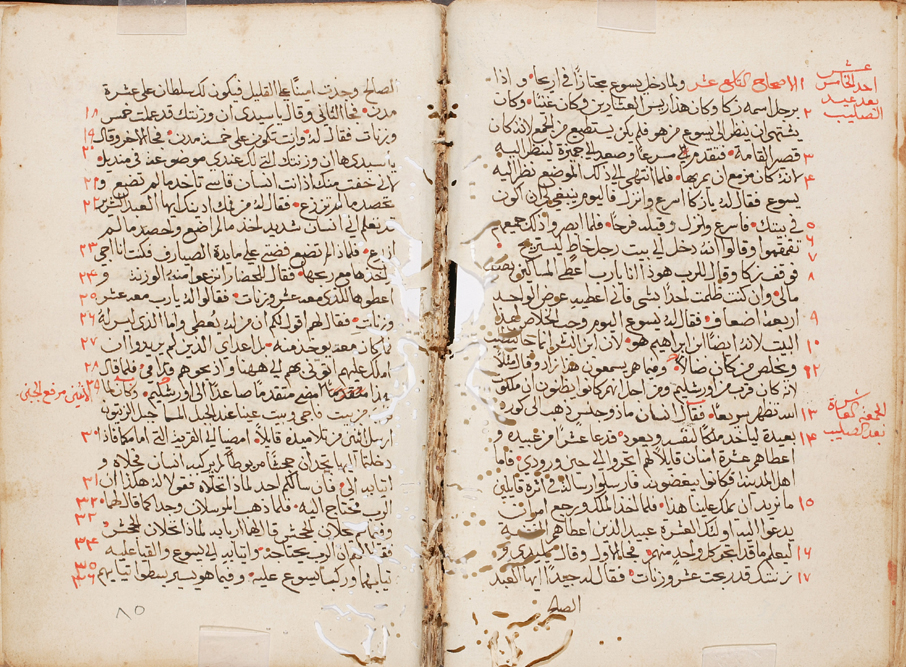 الاصحاح التاسع عشر ولما دخل يسوع مجتازًا في اريحا و اذا
برجل اسمه زكا وكان هذا رئيس العشارين وكان غنيًا وكان
يشتهي ان ينظر الي يسوع من هو فلم يكن يستطيع من الجمع لانه كان
قصير القامة فتقدم مسرعًا وصعد الي جميزة لينظر اليه
لانه كان مزمع ان يمر بها فلما انتهي الي ذلك الموضع نظر اليه
يسوع فقال له يا زكا اسرع وانزل فاليوم ينبغي لي ان اكون
في بيتك فاسرع ونزل وقبله فرحًا فلما ابصروا ذلك جميعهم
تقمقموا وقالوا انه دخل الي بيت رجل خاطٍ ليستريح
فوقف زكا وقال للرب هوذا انا يارب اعطي المساكين نصف
مالي وان كنت ظلمت احدًا بشي فاني اعطيه عوض الواحد
اربعة اضعاف فقال له يسوع اليوم وجب الخلاص لهذا
البيت لانه ايضًا ابن ابرهيم هو لان ابن البشر انما جا ليطلب
ويخلص من كان ضالًا وفيما هم يسمعون هذا زاد وقال مثلًا
لانه كان قرب من اورشليم ومن اجل انهم كانوا يظنون ان ملكوت
الله تظهر سريعًا فقال انسان ماذو جنس ذهب الي كورة
بعيدة لياخذ ملكًا لنفسه ويعود فدعا عشرة من عبيده و
اعطاهم عشرة امنان قايلًا لهم اتجروا الي حين ورودي فاما
اهل المدينة فكانوا يبغضونه فارسلوا رسلًا في اثره قايلين
ما نريد ان يملك علينا هذا فلما اخذ الملك ورجع امر ان
يدعوا اليه اوليك العشرة عبيد الذين اعطاهم الفضة
ليعلم ما قد اتجر كل واحد منهم فجا الاول وقال يا سيدي
وزنتك قد ربحت عشر وزنات فقال له جيدًا ايها العبد
الصالح
عشر
احد الخامس
بعد عيد
الصليب
بعد الصليب
١
٢
٣
٤
٥
٦
٧
٨
٩
١٠
١٢
١٣
١٤
١٥
١٦
١٧
الصالح وجدت امينًا علي القليل فيكون لك سلطان علي عشرة
مدن فجا الثاني وقال يا سيدي ان وزنتك قد عملت خمس
وزنات فقال له وانت تكون علي خمسة مدن فجا الاخر وقال
يا سيدي ها ان وزنتك التي لك عندي موضوعة في منديل
لاني خفت منك اذ انت انسان قاسي تاخذ ما لم تضع و
تحصد ما لم تزرع فقال له من فمك ادينك ايها العبد الشرير
قد تعلم اني انسان شديد اخذ ما لم اضع واحصد ما لم
ازرع فلماذا لم تضع فضتي علي مايدة الصيارف فكنت انا اجي
اخذها مع ربحها فقال للحضار انزعوا منه الوزنة و
اعطوها للذي معه عشر وزنات فقالوا له يارب معه عشر
وزنات فقال لهم اقول لكم ان من له يُعطي واما الذي ليس له
فما كان معه يوخذ منه بل اعداي الذين لم يريدوا ان
املك عليهم ايتوني بهم الي ههنا واذبحوهم قدامي فلما قال
هذا مضي متقدمًا صاعدًا الي اورشليم وكان لما
قرب من بيت فاجي وبيت عنيا عند الجبل المسما جبل الزيتون
ارسل اثنين من تلاميذه قايلًا امضيا الي القرية التي امامكما فاذا
دخلتما اليها تجدان جحشًا مربوطًا لم يركبه انسان فحلاه و
اتيا به الي فان سالكم احد لماذا تحلاه فقولا له هكذا ان
الرب محتاج اليه فلما ذهب المرسلان وجدا كما قال لهما
وفيما هم يحلان الجحش قال لهما اربابه لماذا تحلان الجحش
فقالا لهم ان الرب يحتاجه واتيا به الي يسوع والقيا عليه
ثيابهما وركبا يسوع عليه وفيما هو يسير بسطوا ثيابهم
١٨
١٩
٢٠
٢١
٢٢
٢٣
٢٤
٢٥
٢٦
٢٧
٢٨
٢٩
٣٠
٣١
٣٢
٣٣
٣٤
٣٥
٣٦
٨٥